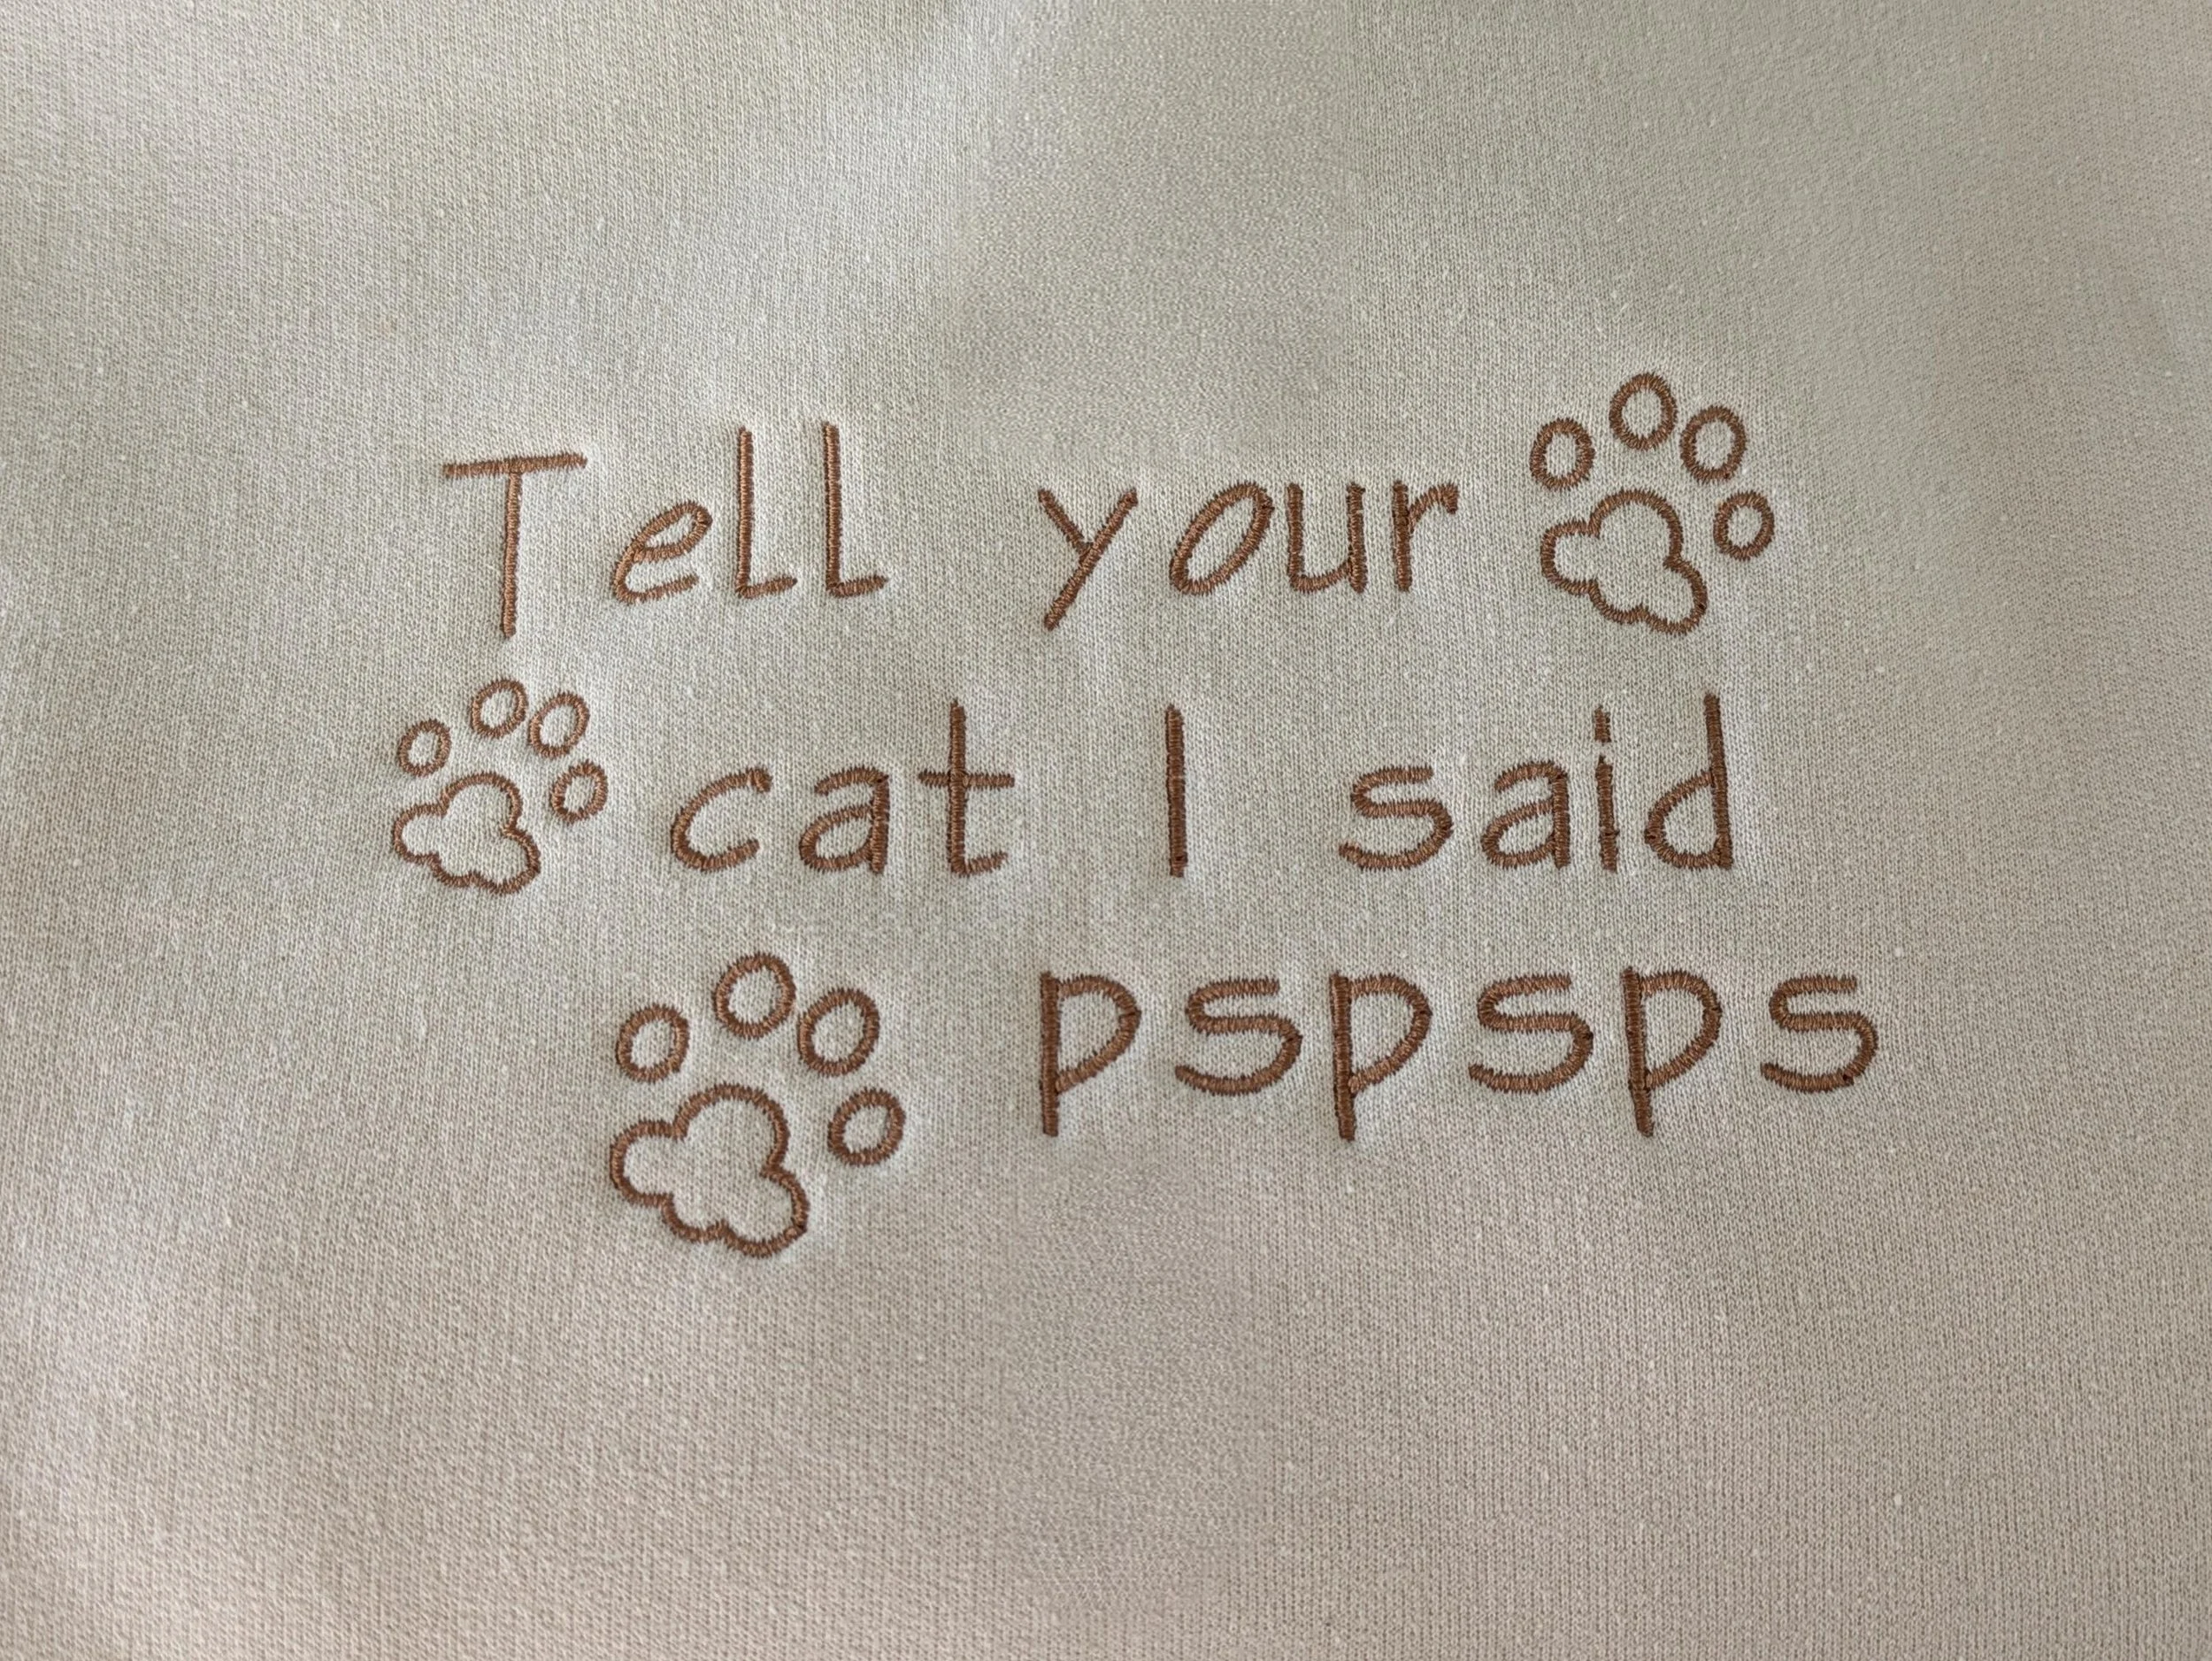 Tell your
cat I said
pspsps